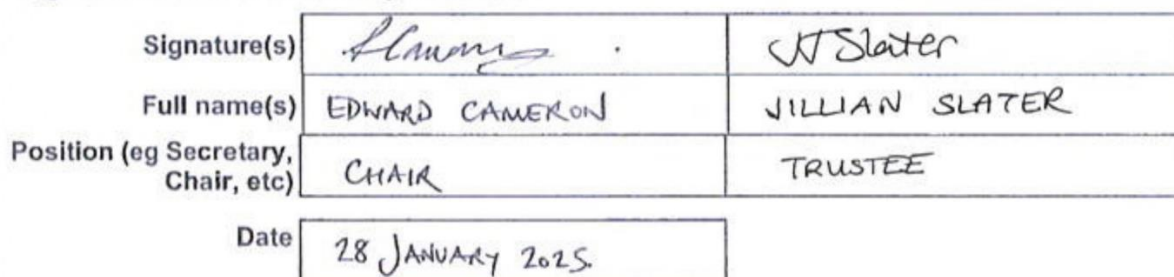 Signature(s) JJSlater
Full name(s) EDWARD CAMERON JILLIAN SLATER
Position (eg Secretary,
Chair, etc) CHAIR TRUSTEE
Date 28 JANUARY 2025.